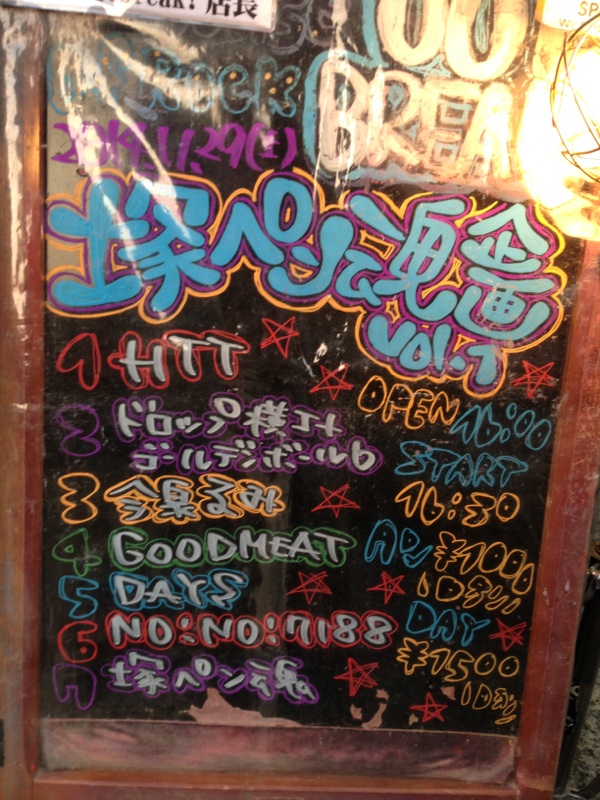 reak! 店長
ROCK
BREA
2014.11.29(土)
塚ペン魂企画
vol.1
1 HTT
2 ドロップ横丁+
ゴールデンボールb
3 今泉るみ
4 GOODMEAT
5 DAYS
6 NO:NO:7188
7 塚ペン魂
OPEN 16:00
START
16:30
AD ¥1000
1D別
DAY
¥1500
1D別
SP